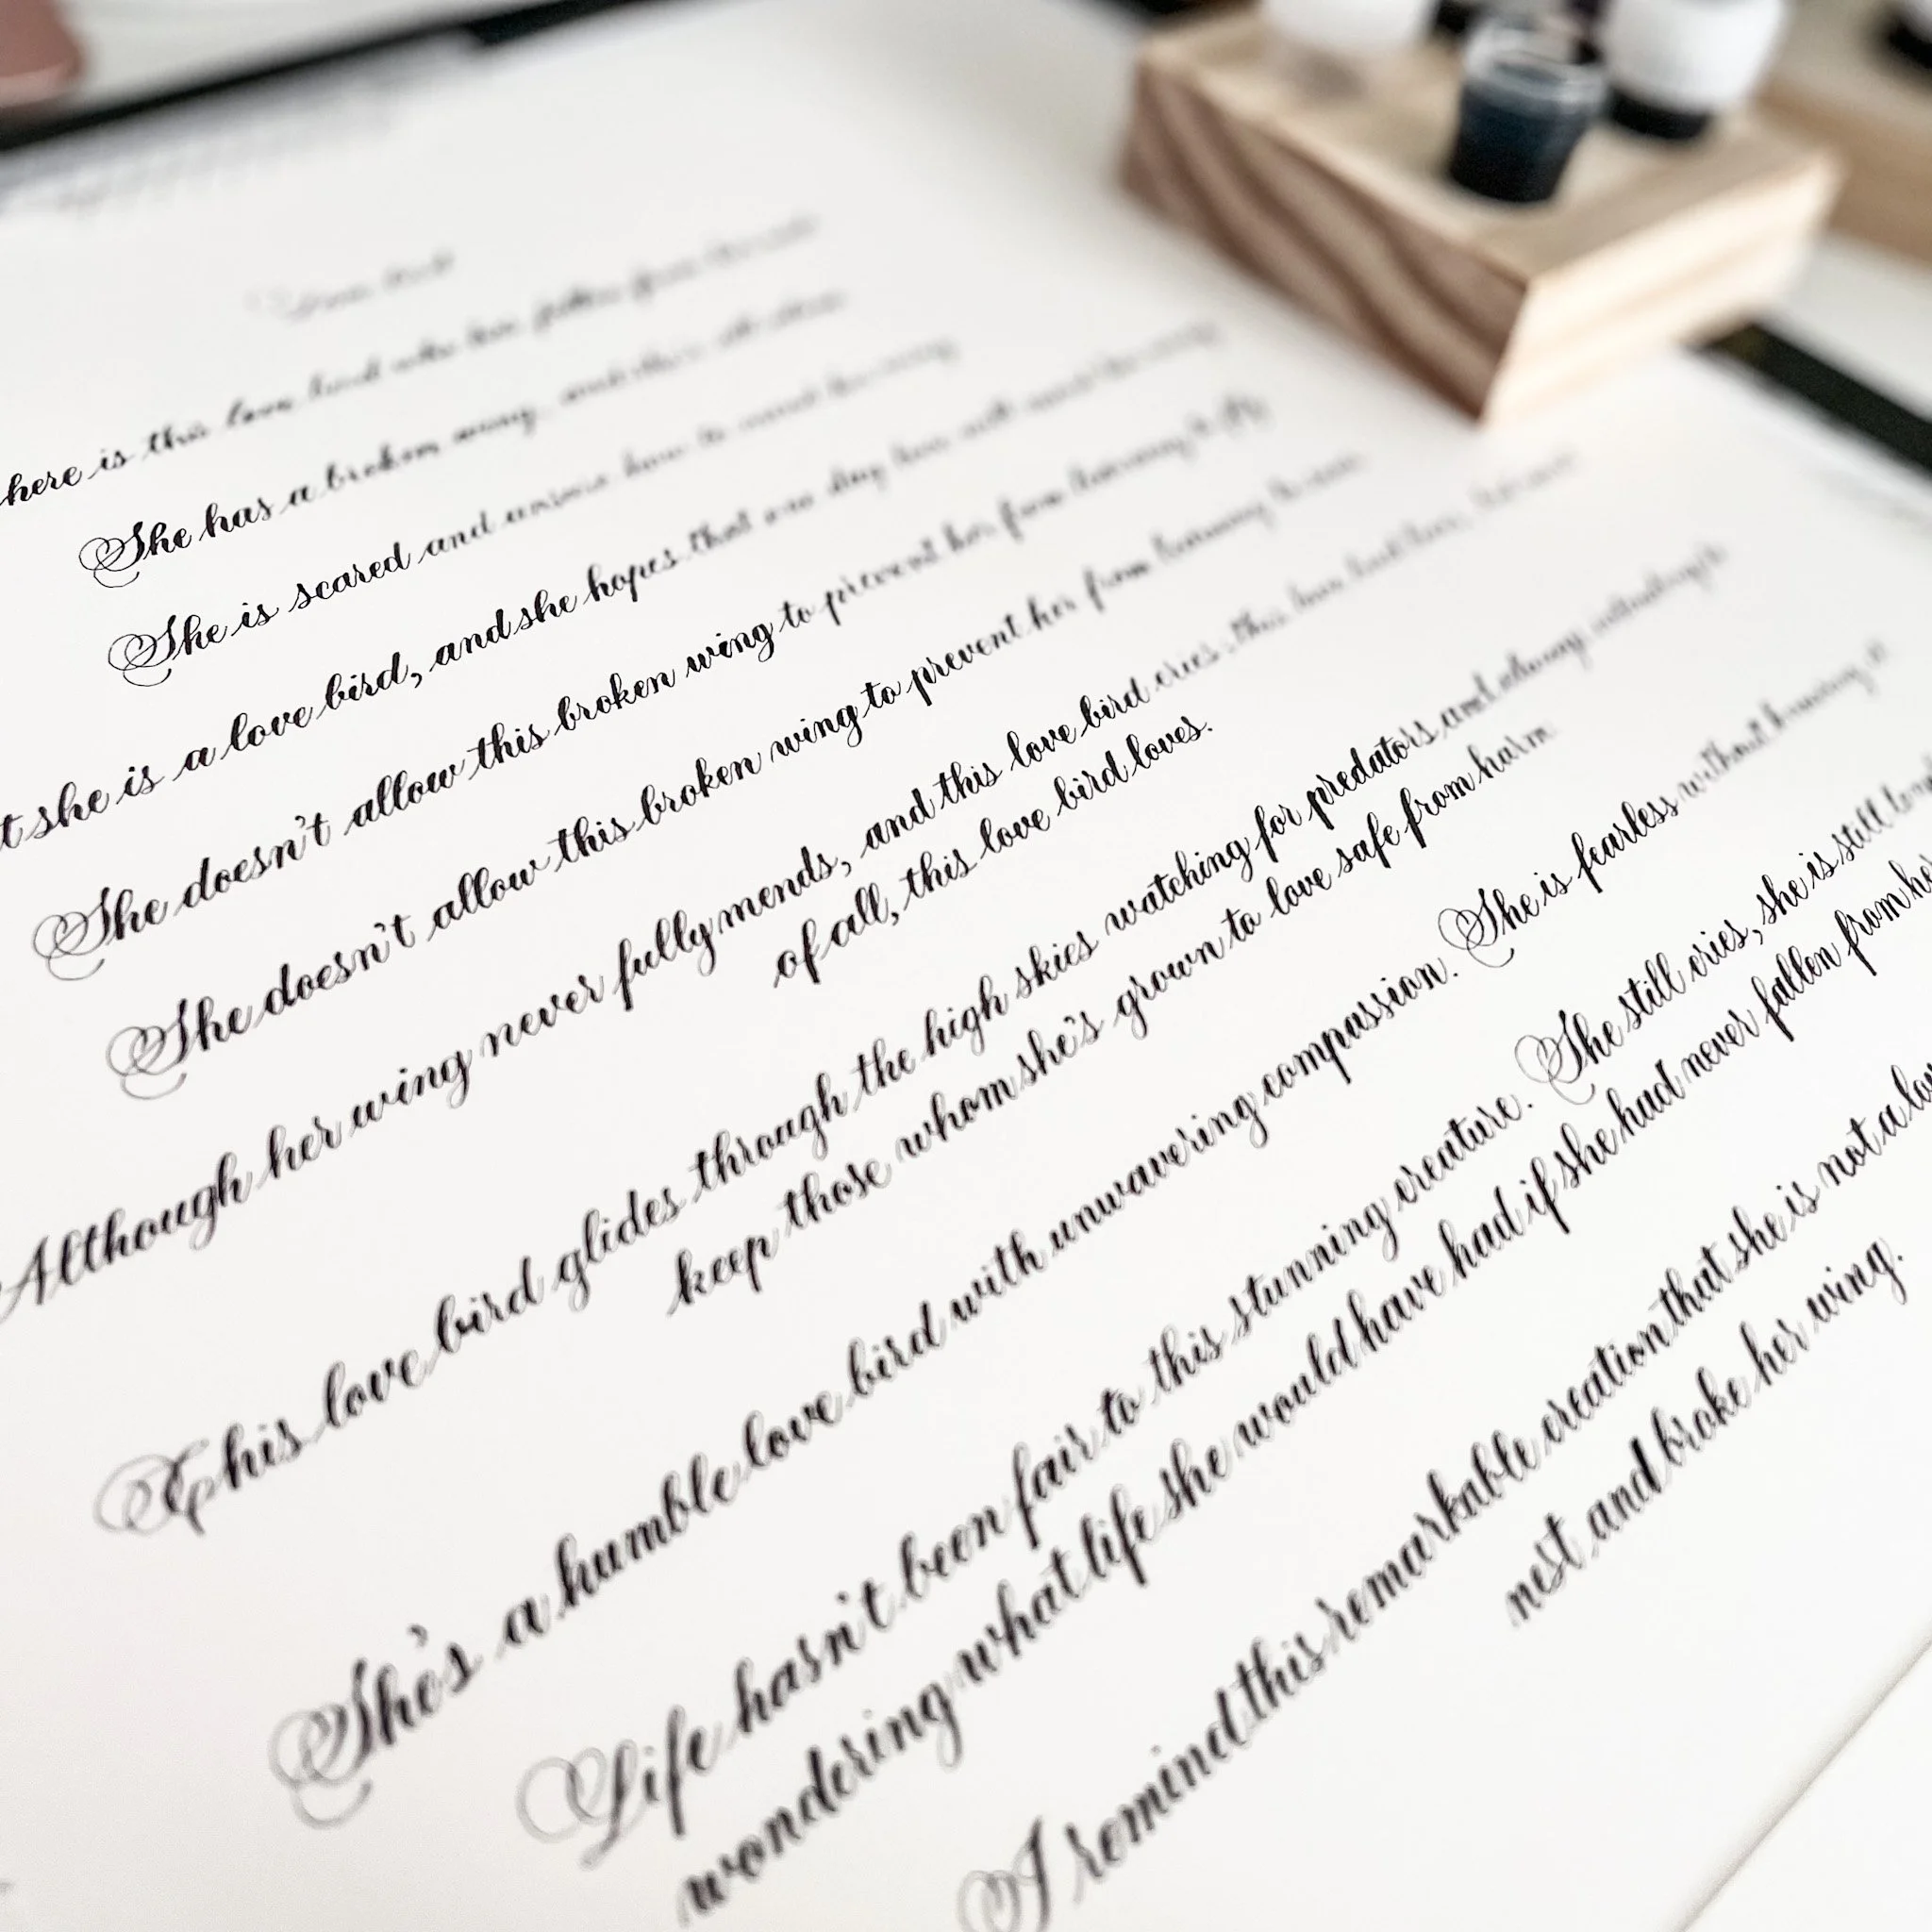 here is this love bird who has fallen from
She has a broken wing, and she's
She is scared and unsure how to mend her wing
t she is a love bird, and she hopes that one day love will mend her wing
She doesn't allow this broken wing to prevent her from learning to fly
She doesn't allow this broken wing to prevent her from learning to
Although her wing never fully mends, and this love bird cries, this love bird
of all, this love bird loves.
This love bird glides through the high skies watching for predators and always
keep those whom she's grown to love safe from harm
She's a humble love bird with unwavering compassion. She is fearless without knowing it
Life hasn't been fair to this stunning creature. She still cries, she is still
wondering what life she would have had if she had never fallen from he
I remind this remarkable creation that she is not a lov
nest and broke her wing.